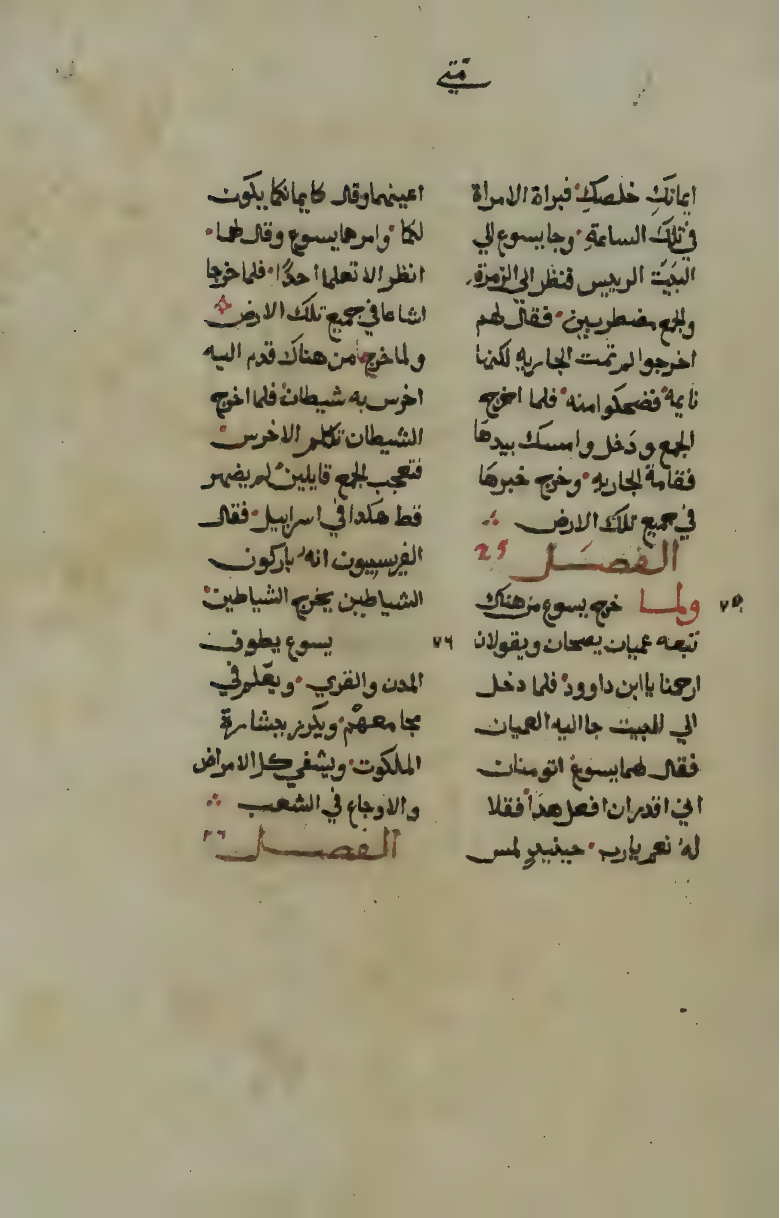 متي
ايمانكِ خلصكِ فبراة الامراة
في تلك الساعةِ وجا يسوع الي
البَيت الرييس فنظر الي الزمرة
والجمع مضطربين فقال لهم
اخرجوا لم تمت الجاريه لكنها
نايمة فضحكوا منه فلما اخرج
الجمع ودخل وامسك بيدها
فقامة الجاريه وخرج خبرها
في جميع تلك الارض
الفصل 25
ولما خرج يسوع من هناك
٧٥
تبعه عميان يصحان ويقولان
ارحمنا يا ابن داوود فلما دخل
الي للبيت جا اليه العميان
فقال لهما يسوع اتومنان
اني اقدر ان افعل هدا فقلا
له نعم يارب حينيدٍ لمس
اعينهما وقال كايمانكما يكون
لكما وامرهما يسوع وقال لهما
انظر الا تعلما احدًا فلما خرجا
اشاعا في جميع تلك الارض
ولما خرجا من هناك قدم اليه
اخرس به شيطان فلما اخرج
الشيطان تكلم الاخرس
فتعجب الجمع قايلين لم يضهر
قط هكدا في اسراييل فقال
الفريسييون انه باركون
الشياطين يخرج الشياطين
٧٦ يسوع يطوف
المدن والقري ويعّلم في
مجامعهُم ويكرز ببشارة
الملكوت ويشفي كل الامراض
والاوجاع في الشعب
الفصل ٢٦